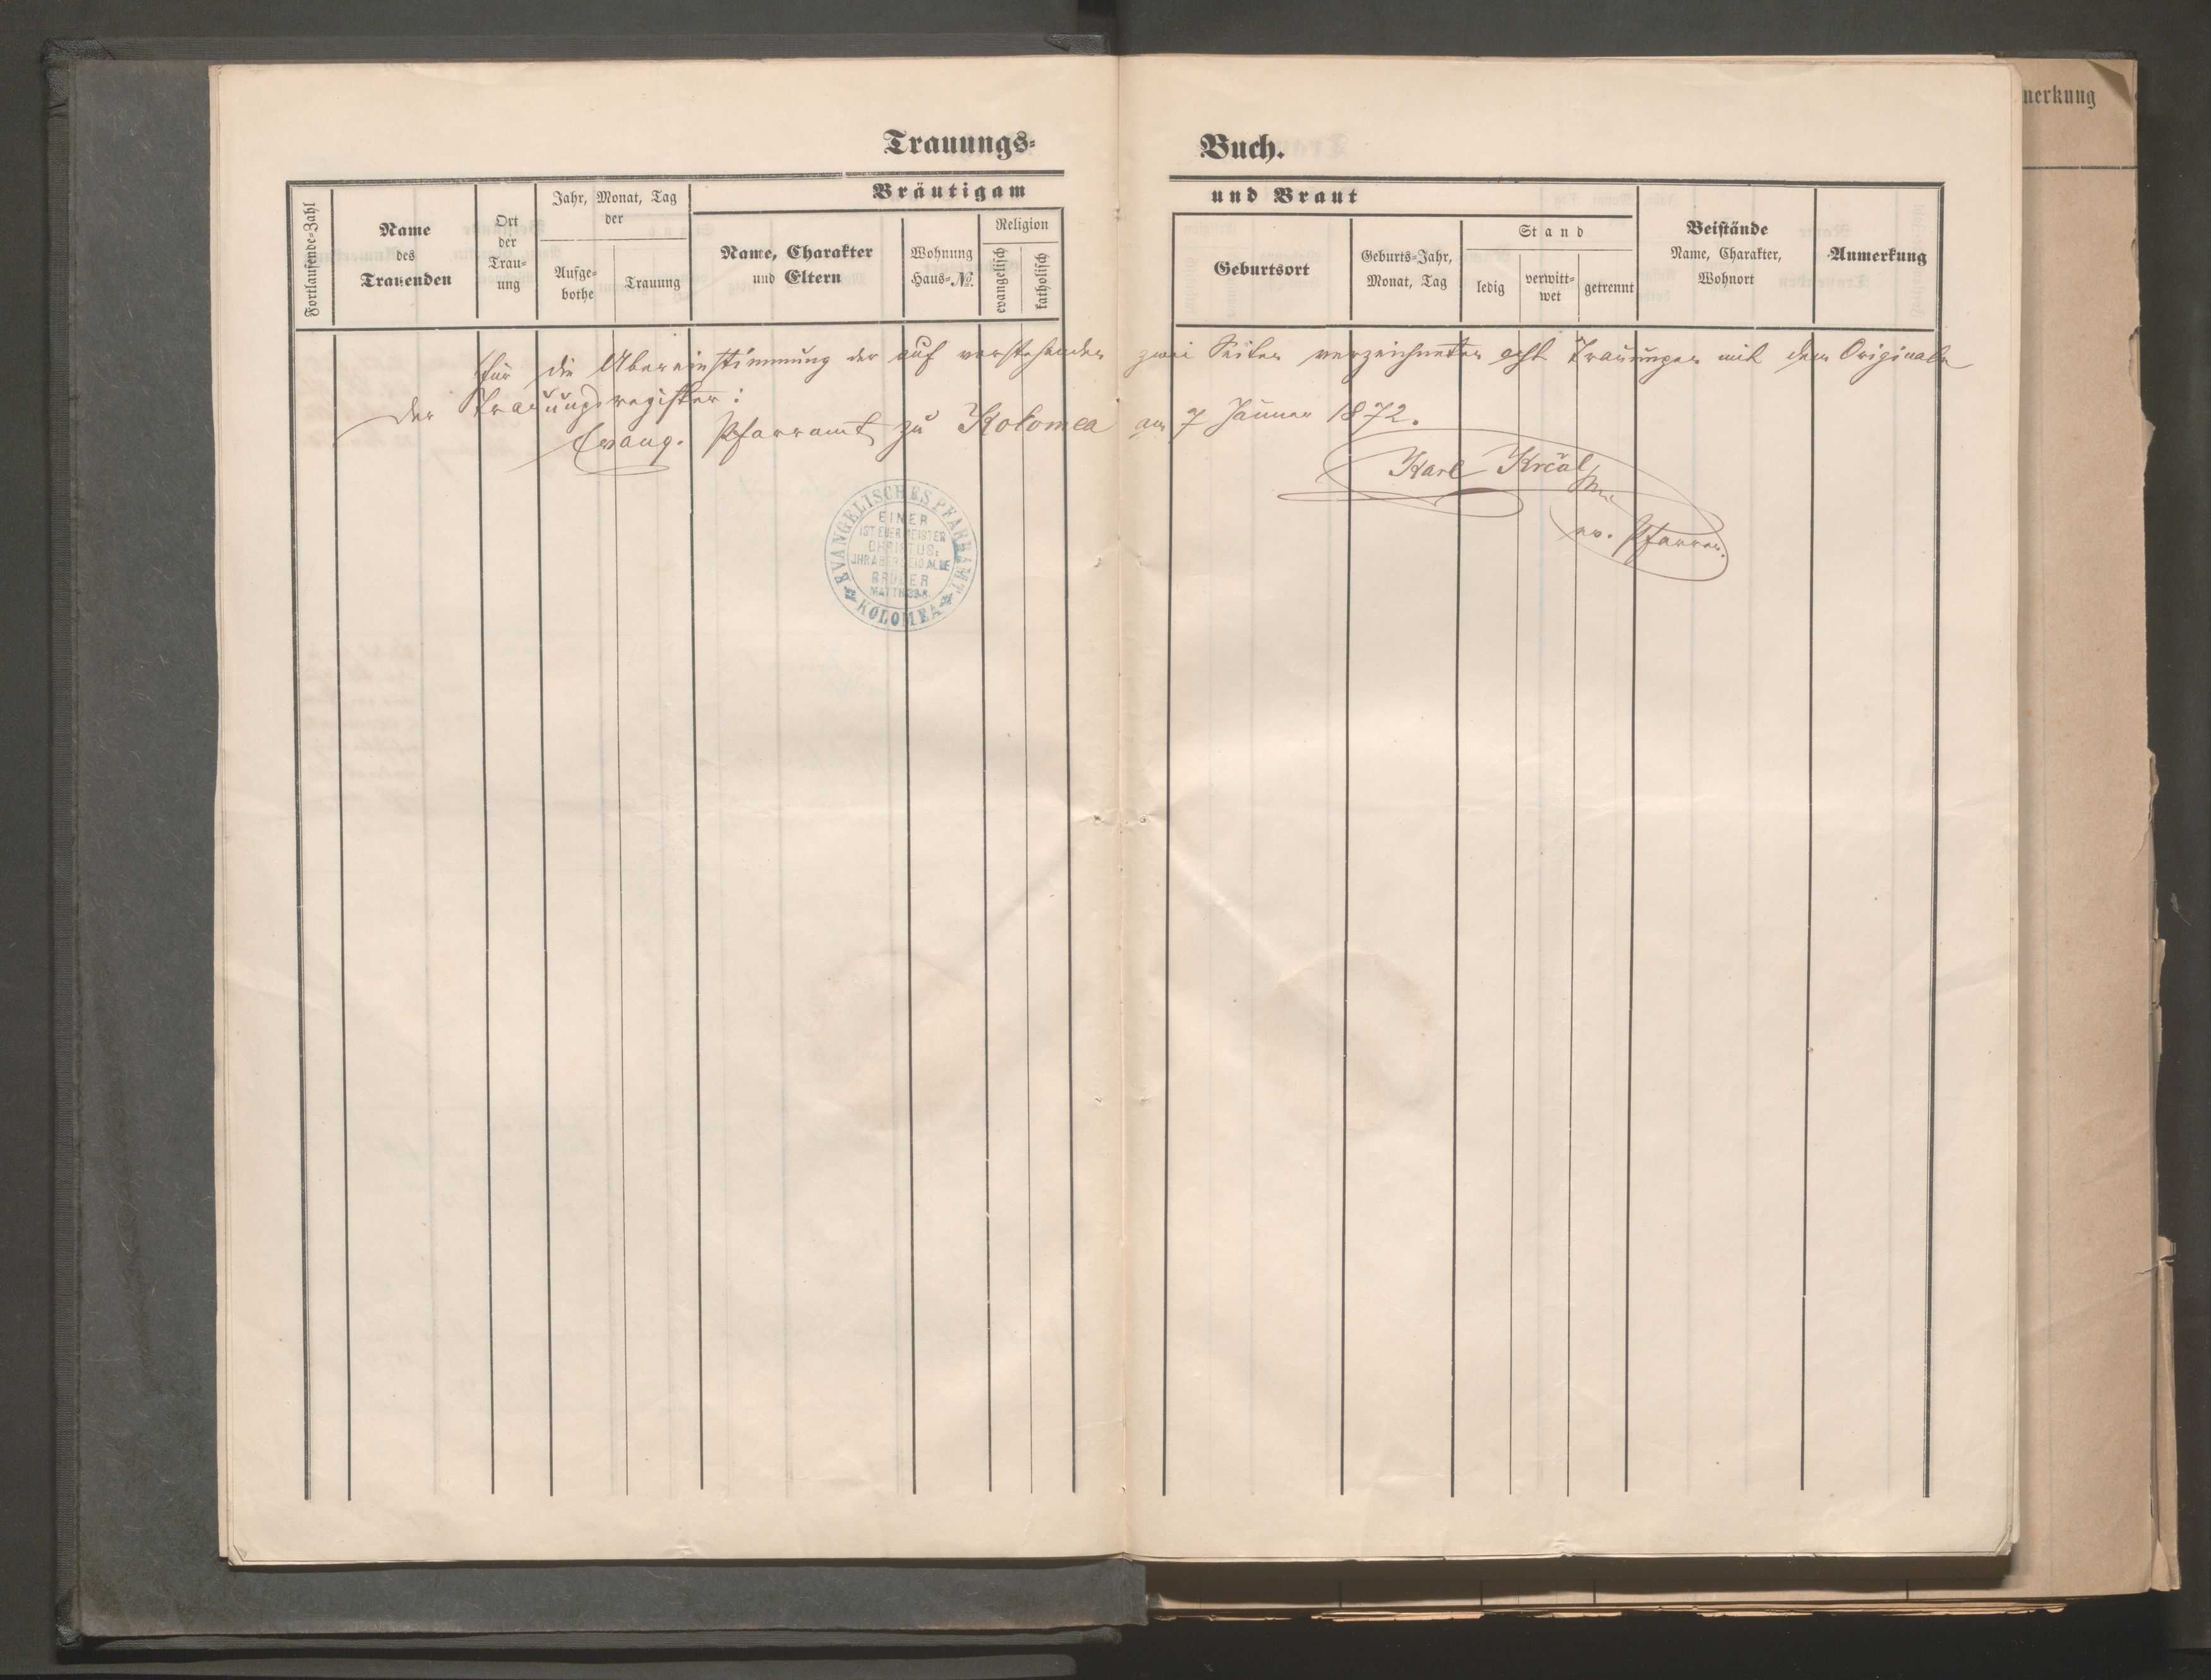 Trauungs- Buch.
Fortlaufende-Zahl
Name
des
Trauenden
Ort
der
Trau-
ung
Jahr, Monat, Tag
der
Aufge-
bothe
Trauung
Bräutigam und Braut
Name, Charakter
und Eltern
Wohnung
Haus-No.
Religion
evangelisch
katholisch
Geburtsort
Geburts-Jahr,
Monat, Tag
Stand
ledig
verwitt-
wet
getrennt
Beistände
Name, Charakter,
Wohnort
Anmerkung
Für die Übereinstimmung der auf vorstehenden zwei Seiten verzeichneten acht Trauungen mit dem Originale
der Trauungsregister:
Evang. Pfarramt zu Kolomea am 7 Jänner 1872.
Karl Krčal
ev. Pfarrer.
EVANGELISCHES PFARRAMT
KOLOMEA
EINER
IST EUER MEISTER
CHRISTUS:
IHR ABER SEID ALLE
BRÜDER
MATTH 23.8.
merkung